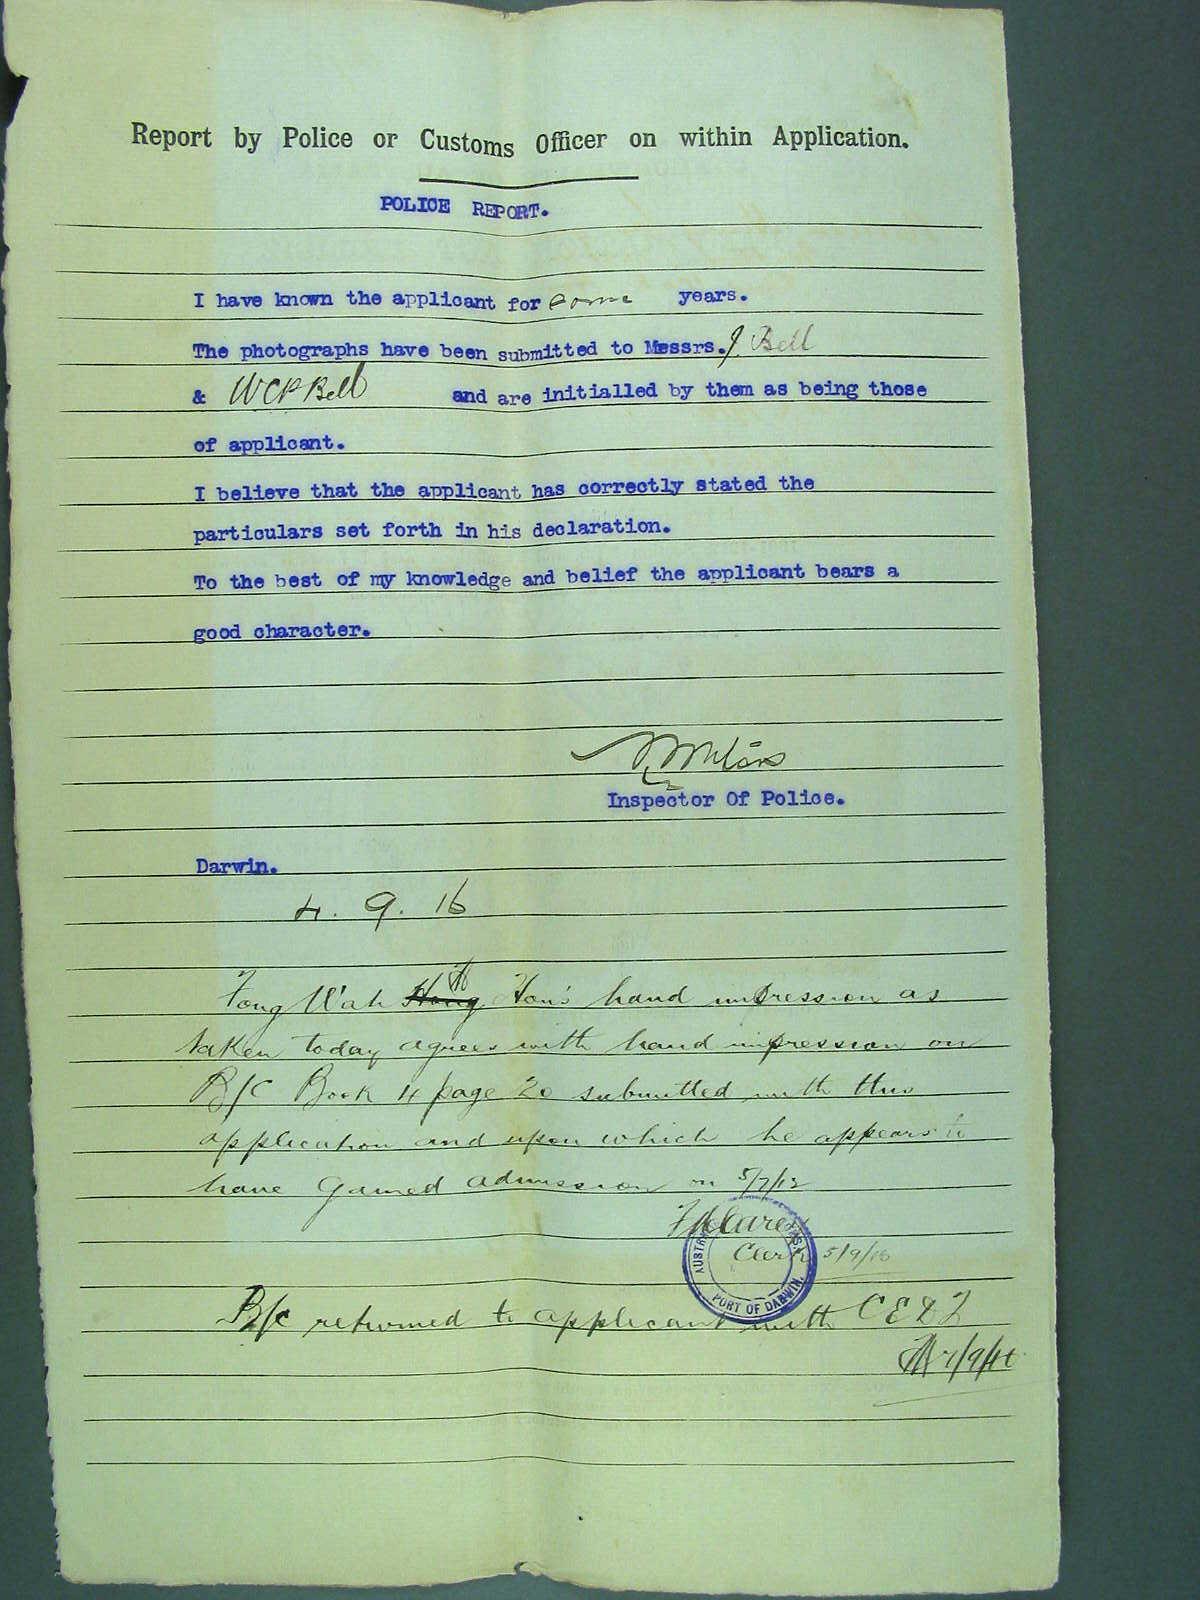 Report by Police or Customs Officer on within Application.
POLICE REPORT.
I have known the applicant for some years.
The photographs have been submitted to Messrs. J. Bell
& WCP Bell and are initialled by them as being those
of applicant.
I believe that the applicant has correctly stated the
particulars set forth in his declaration.
To the best of my knowledge and belief the applicant bears a
good character.
Inspector Of Police.
Darwin.
4. 9. 16
Fong Wah Hon's hand impression as
taken today agrees with hand impression on
B/C Book 4 page 20 submitted with this
application and upon which he appears to
have gained admission on 5/7/12
Clerk 5/9/16
PORT OF DARWIN.
B/c returned to applicant with C E D T